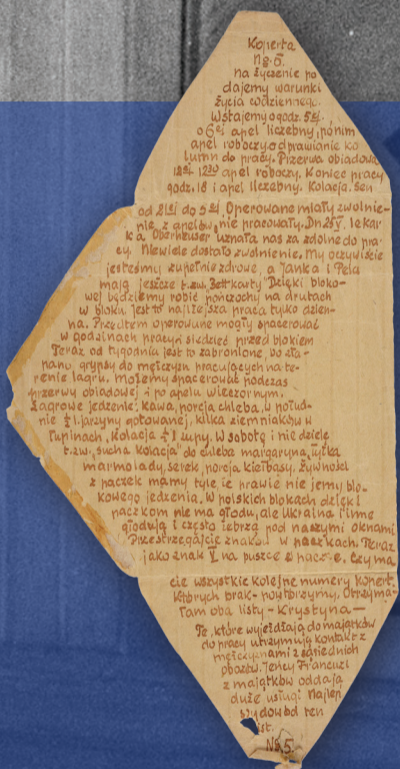 Koperta
No. 5.
na życzenie po
dajemy warunki
życia codziennego.
Wstajemy o godz. 5ej.
o 6ej apel liczebny, po nim
apel roboczy odprawianie ko
lumn do pracy. Przerwa obiadowa
12ej 1230 apel roboczy. Koniec pracy
godz. 18 i apel liczebny. Kolacja. Sen
od 21ej do 5ej. Operowane miały zwolnie-
nie z apelów, nie pracowały. Dn 25 V. lekar
ka Oberheuser uznała nas za zdolne do pra-
cy. Niewiele dostało zwolnienie. My oczywiście
jesteśmy zupełnie zdrowe, a Janka i Pela
mają jeszcze t. zw. Bettkarty. Dzięki bloko-
wej będziemy robić pończochy na drutach
w bloku jest to najlżejsza praca tylko dzien-
na. Przedtem operowane mogły spacerować
w godzinach pracy i siedzieć przed blokiem
Teraz od tygodnia jest to zabronione, bo zła-
pano grypsy do mężczyzn pracujących na te-
renie lagru. Możemy spacerować podczas
przerwy obiadowej i po apelu wieczornym.
Lagrowe jedzenie: kawa, porcja chleba, w połud-
nie ½ l. jarzyny gotowanej, kilka ziemniaków w
łupinach, Kolacja ½ l zupy. W sobotę i niedziele
t. zw. „sucha kolacja” do chleba margaryna, łyżka
marmolady, serek, porcja kiełbasy. Żywności
z paczek mamy tyle, że prawie nie jemy blo-
kowego jedzenia. W polskich blokach dzięki
paczkom nie ma głodu, ale Ukraina i inne
głodują i często żebrzą pod naszymi oknami
Przestrzegajcie znaków w paczkach. Teraz
jako znak V na puszce w paczce. Czy ma
cie wszystkie kolejne numery kopert
których brak - powtórzymy. Otrzyma-
łam oba listy - Krystyna —
Te, które wyjeżdżają do majątków
do pracy utrzymują kontakt z
mężczyznami z sąsiednich
obozów. Jeńcy Francuzi
z majątków oddają
duże usługi. Najlep
szy dowód ten
list.
No 5.